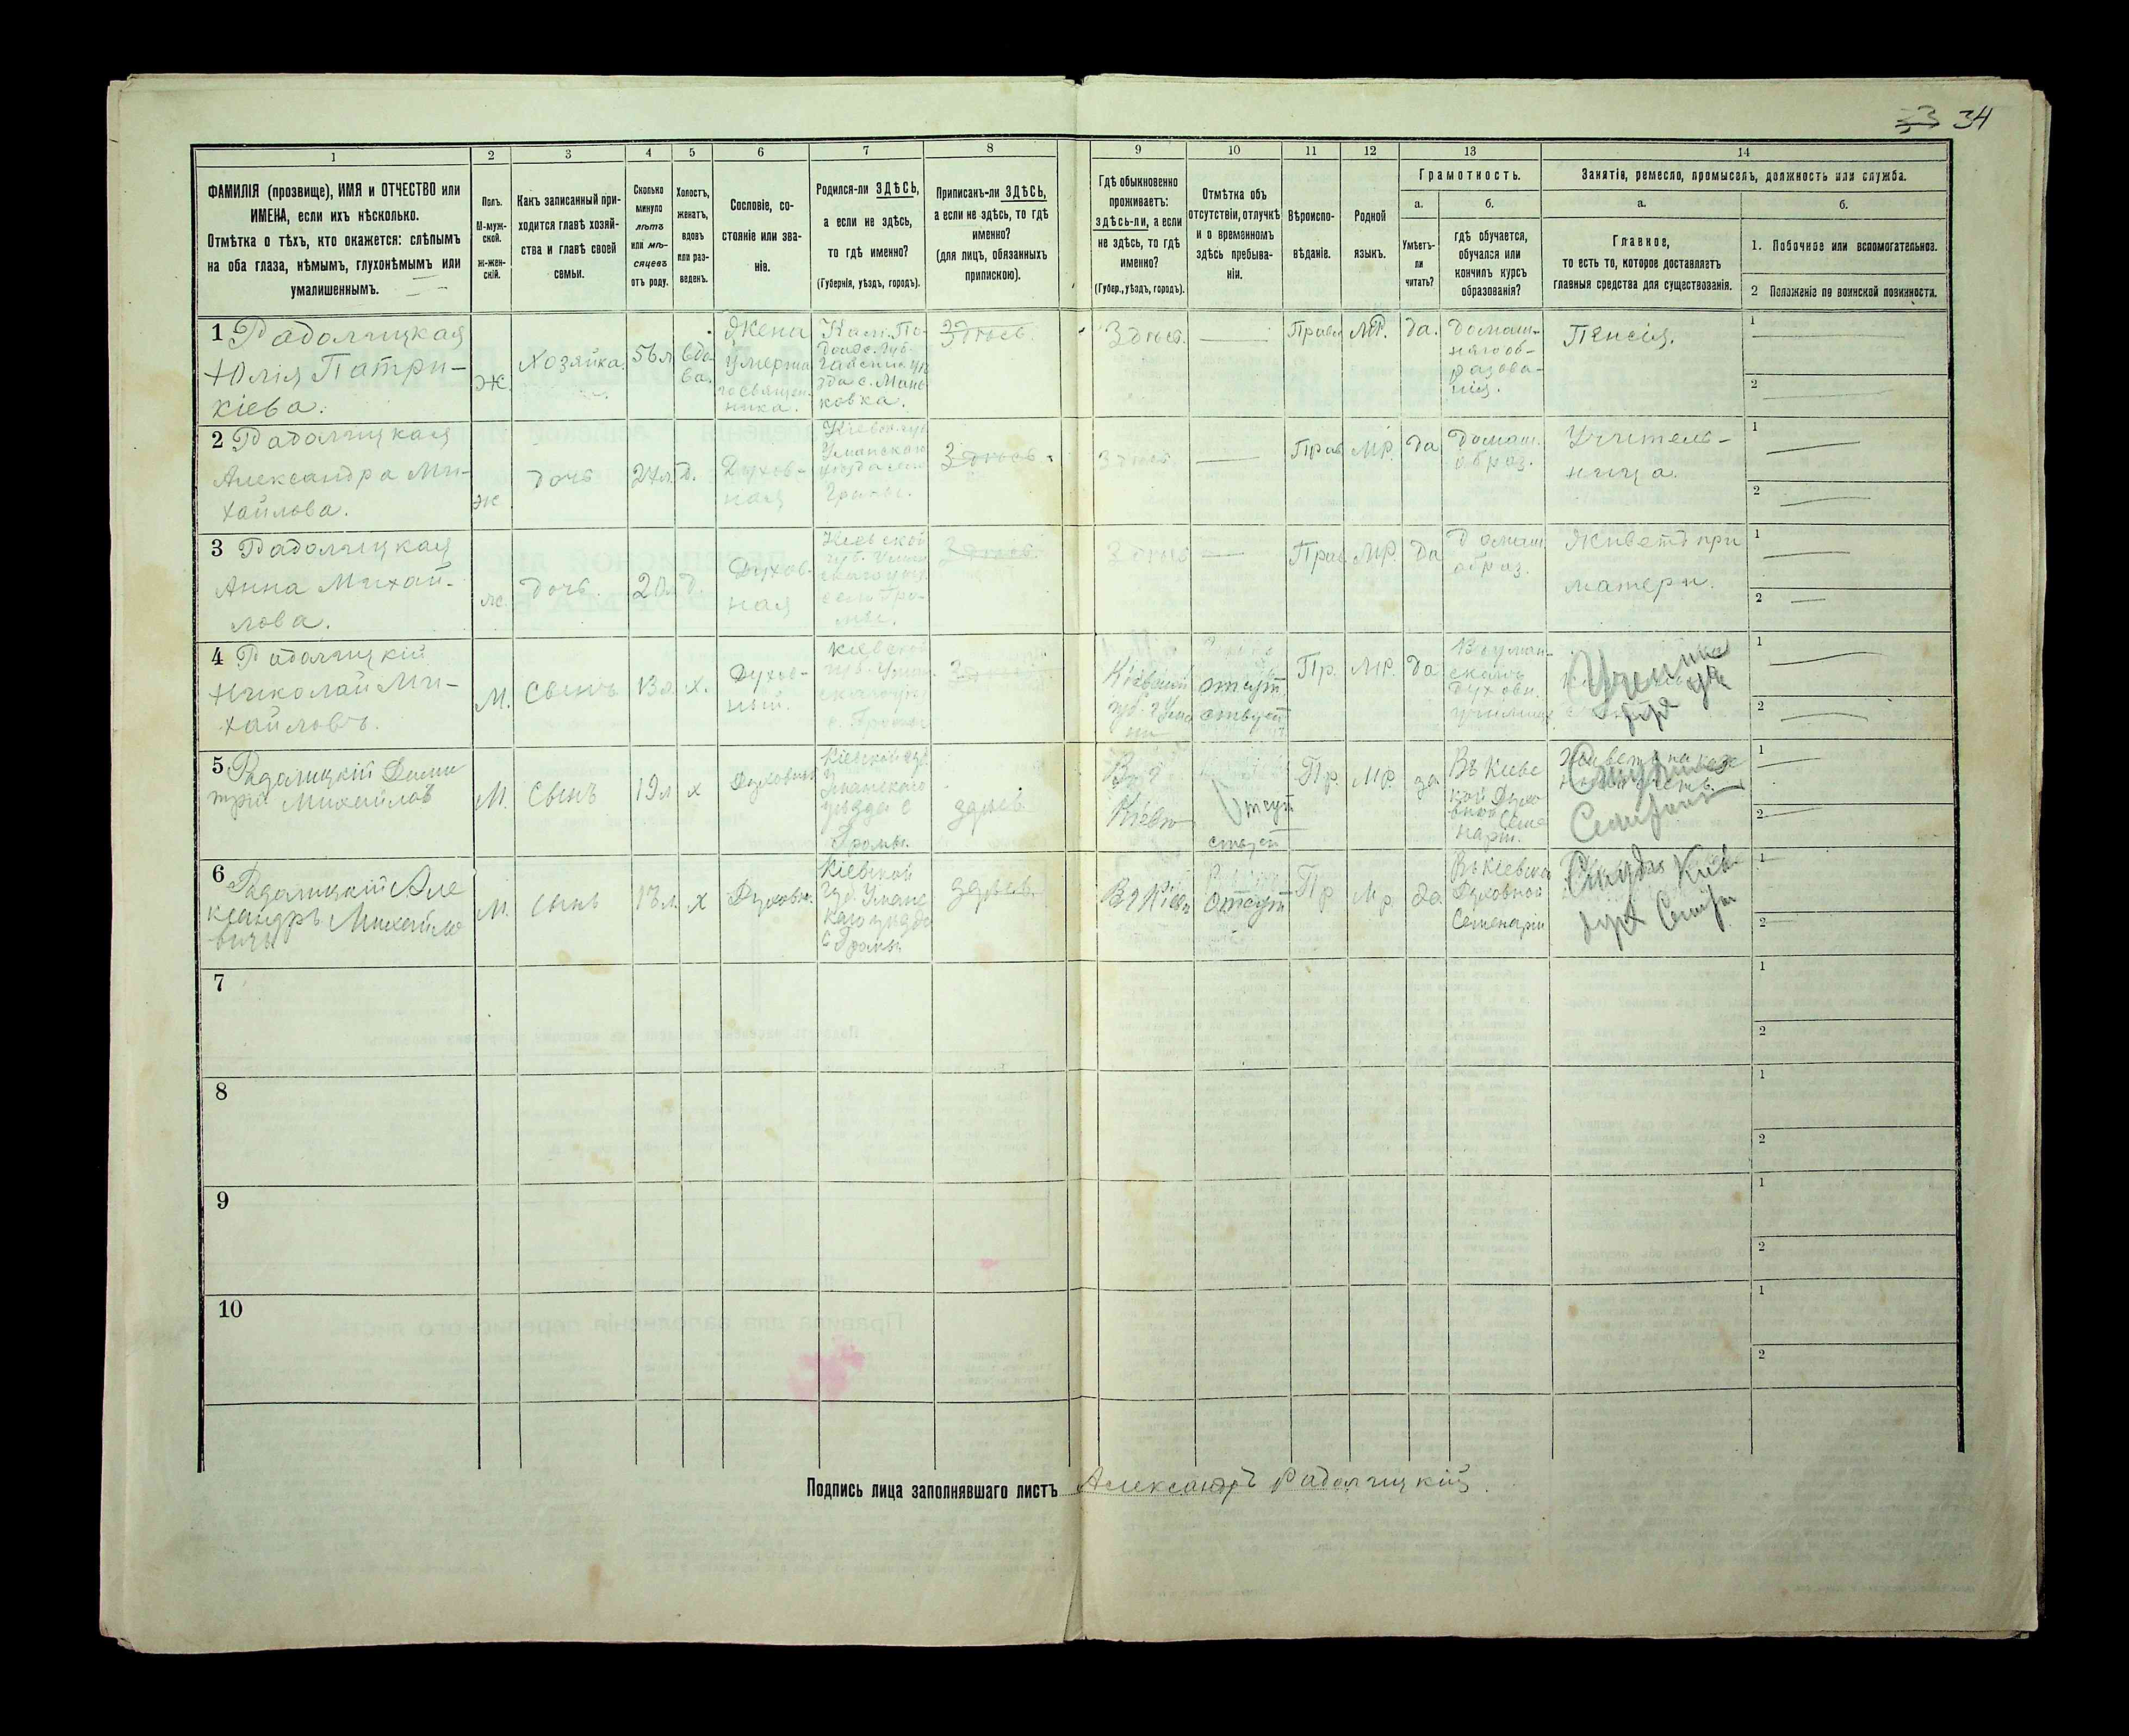 33 34
1 2 3 4 5 6 7 8 9 10 11 12 13 14
ФАМИЛІЯ (прозвище), ИМЯ и ОТЧЕСТВО или
ИМЕНА, если ихъ нѣсколько.
Отмѣтка о тѣхъ, кто окажется: слѣпымъ
на оба глаза, нѣмымъ, глухонѣмымъ или
умалишеннымъ.
Полъ.
М-муж-
ской.
ж-жен-
скій.
Какъ записанный при-
ходится главѣ хозяй-
ства и главѣ своей
семьи.
Сколько
минуло
лѣтъ
или мѣ-
сяцевъ
отъ роду.
Холостъ,
женатъ,
вдовъ
или раз-
веденъ.
Сословіе, со-
стояніе или зва-
ніе.
Родился-ли ЗДѢСЬ,
а если не здѣсь,
то гдѣ именно?
(Губернія, уѣздъ, городъ).
Приписанъ-ли ЗДѢСЬ,
а если не здѣсь, то гдѣ
именно?
(для лицъ, обязанныхъ
припискою).
Гдѣ обыкновенно
проживаетъ:
здѣсь-ли, а если
не здѣсь, то гдѣ
именно?
(Губер., уѣздъ, городъ).
Отмѣтка объ
отсутствіи, отлучкѣ
и о временномъ
здѣсь пребыва-
ніи.
Вѣроиспо-
вѣданіе.
Родной
языкъ.
Грамотность.
а.
Умѣетъ-
ли
читать?
б.
гдѣ обучается,
обучался или
кончилъ курсъ
образованія?
Занятіе, ремесло, промыселъ, должность или служба.
а.
Главное,
то есть то, которое доставляетъ
главныя средства для существованія.
б.
1. Побочное или вспомогательное.
2 Положеніе по воинской повинности.
1 Радолицкая
Юлія Патри-
кіева.
Ж.
Хозяйка.
56 л
вдо-
ва.
Жена
умерша
го священ-
ника.
Кам. По-
ковка.
Здѣсь
Здѣсь.
Правл
МР.
да.
Домаш-
няго об-
разова-
нія.
Пенсія.
1
2
2 Радолицкая
Александра Ми-
хайлова.
Ж
дочь
27 л.
Д.
Духов-
ная
Кіевск. губ
Уманскаго
уѣзда село
Громы.
Здѣсь
Здѣсь
Прав
МР.
да
Домаш.
образ.
Учитель-
ница.
1
2
3 Радолицкая
Анна Михай-
лова.
ж.
дочь.
Д.
Духов-
ная
Кіевской
губ. Уман
скаго уѣз
село Гро-
мы.
Здѣсь.
Здѣсь
Прав
МР.
Да
Домаш
образ.
Живетъ при
матери.
1
2
4 Радолицкій
Николай Ми-
хайловъ.
М.
Сынъ
13 л.
х.
Духов-
ный.
Кіевской
губ. Уман
скаго уѣз.
с. Громы
Здѣсь
Кіевской
губ. г Ума
ни
отсут
ствует
Пр.
МР.
да
В Уман-
скомъ
духовн.
училищѣ
1
2
5 Радолицкій Дими
трій Михайлов
М.
Сынъ
19 л
х
Духовный
Кіевской губ.
Уманскаго
уѣзда с
Громы.
здѣсь
Въ
Кіевѣ
Отсут
ствует
Пр.
Мр.
да
Въ Кіевс
кой Духо
вной Семе
наріи.
1
2
6 Радолицкій Але
ксандръ Михайло
вичъ
М.
сынъ
х
Духовн.
Кіевской
Губ. Уманс
каго уѣзда
с Громы
здѣсь
Въ Кіевѣ
Отсут
Пр
Мр.
да.
Въ Кіевско
Духовной
Семенаріи
1
2
7
1
2
8
1
2
9
1
2
10
1
2
Подпись лица заполнявшаго листъ Александръ Радолицкій.